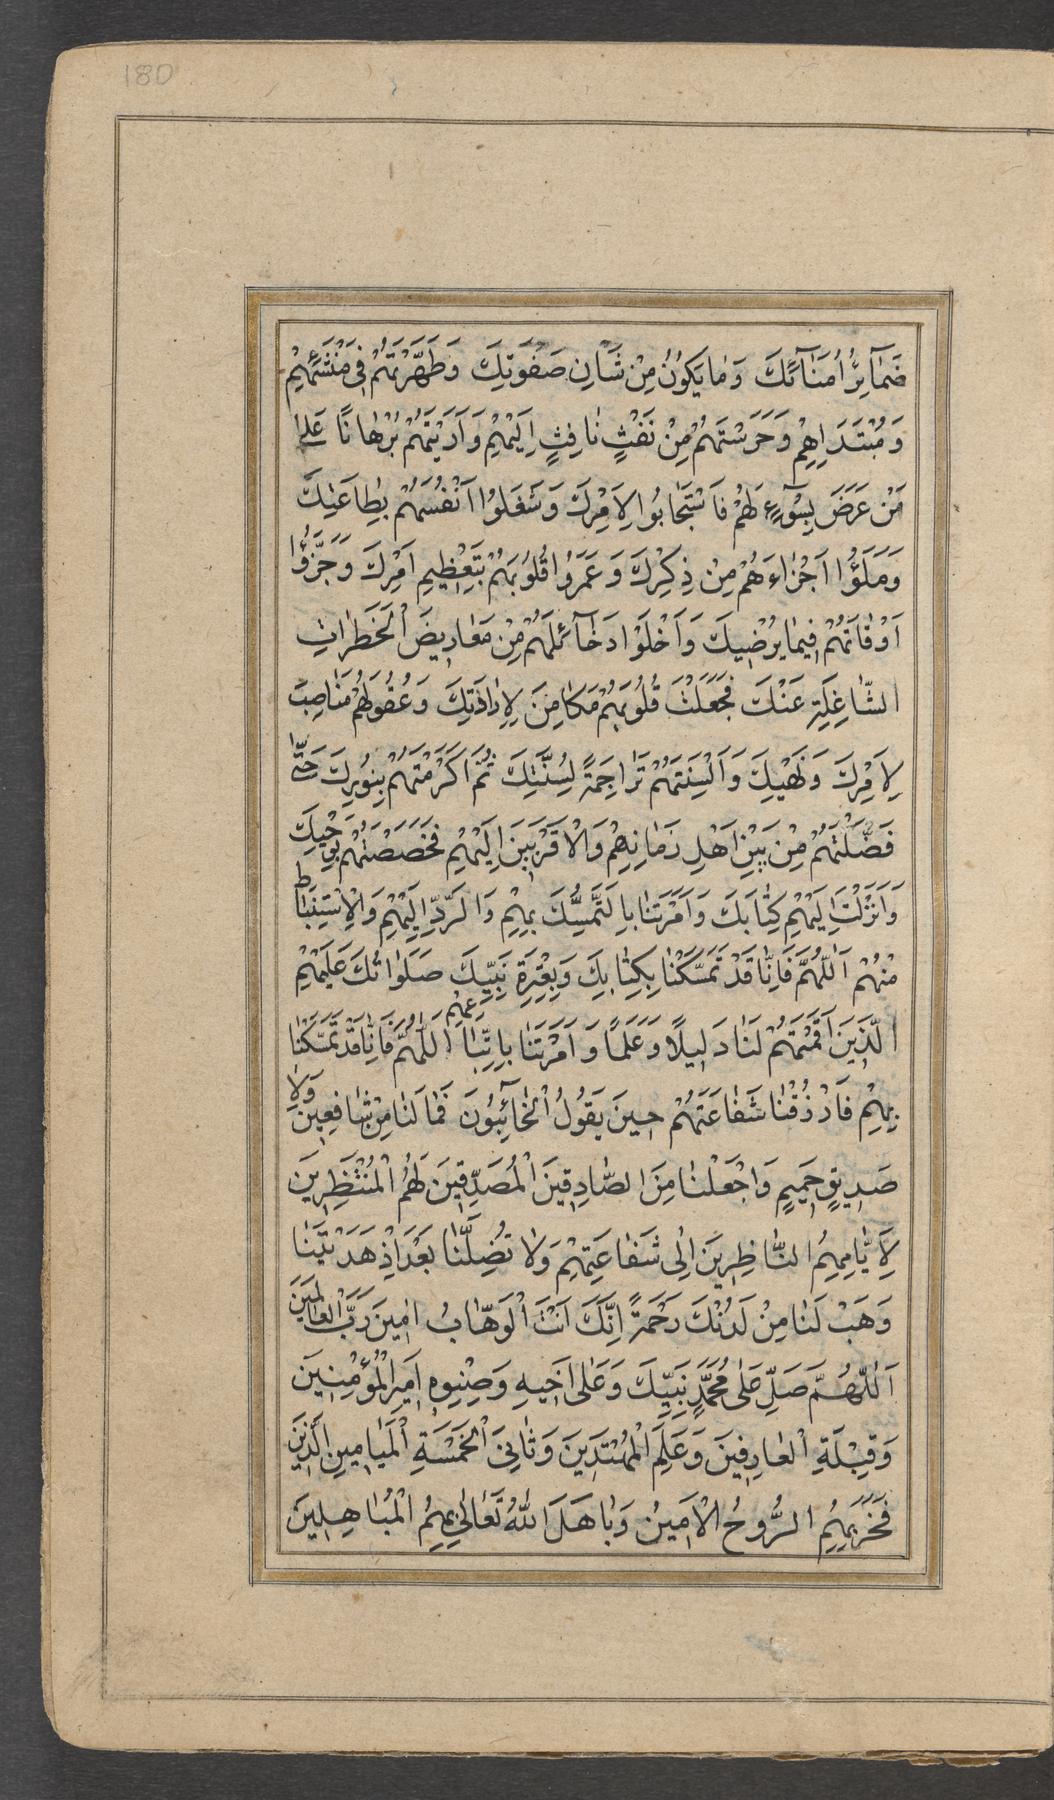 180
ضَمٰآئِرُ اُمَنٰآئِكَ وَمٰا يَكُونُ مِنْ شَاْنِ صَفْوَتِكَ وَطَهَّرْتَهُمْ فِى مَنْشَئِهِمْ
وَمُبْتَدَاِهِمْ وَحَرَسْتَهُمْ مِنْ نَفْثِ نٰافِثٍ اِلَيْهِمْ وَاَرَيْتَهُمْ بُرْهٰانًا عَلىٰ
مَنْ عَرَضَ بِسُوٓءٍ لَهُمْ فَاسْتَجٰابُوا لِاَمْرِكَ وَشَغَلُوْا اَنْفُسَهُمْ بِطٰاعَتِكَ
وَمَلَؤُا اَجْزٰاءَهُمْ مِنْ ذِكْرِكَ وَعَمَرُوْا قُلُوبَهُمْ بِتَعْظِيمِ اَمْرِكَ وَجَزَّؤُا
اَوْقٰاتَهُمْ فِيمٰا يُرْضِيكَ وَاَخْلَوْا دَخٰآئِلَهُمْ مِنْ مَعٰارِيضِ الْخَطَرٰاتِ
الشّٰاغِلَةِ عَنْكَ فَجَعَلْتَ قُلُوبَهُمْ مَكٰامِنَ لِاِرٰادَتِكَ وَعُقُولَهُمْ مَنٰاصِبَ
لِاَمْرِكَ وَنَهْيِكَ وَاَلْسِنَتَهُمْ تَرٰاجِمَةً لِسُنَّتِكَ ثُمَّ اَكْرَمْتَهُمْ بِنُورِكَ حَتّٰى
فَضَّلْتَهُمْ مِنْ بَيْنِ اَهْلِ زَمٰانِهِمْ وَالْاَقْرَبِينَ اِلَيْهِمْ فَخَصَصْتَهُمْ بِوَحْيِكَ
وَاَنْزَلْتَ اِلَيْهِمْ كِتٰابَكَ وَاَمَرْتَنٰا بِالتَّمَسُّكِ بِهِمْ وَالرَّدِّ اِلَيْهِمْ وَالْاِسْتِنْبٰاطِ
مِنْهُمْ اَللّٰهُمَّ فَاِنّٰا قَدْ تَمَسَّكْنٰا بِكِتٰابِكَ وَبِعِتْرَةِ نَبِيِّكَ صَلَوٰاتُكَ عَلَيْهِمْ
الَّذِينَ اَقَمْتَهُمْ لَنٰا دَلِيلًا وَعَلَمًا وَاَمَرْتَنٰا بِاتِّبٰاعِهِمْ اَللّٰهُمَّ فَاِنّٰا قَدْ تَمَسَّكْنٰا
بِهِمْ فَارْزُقْنٰا شَفٰاعَتَهُمْ حِينَ يَقُولُ الْخٰآئِبُونَ فَمٰا لَنٰا مِنْ شٰافِعِينَ وَلٰا
صَدِيقٍ حَمِيمٍ وَاجْعَلْنٰا مِنَ الصّٰادِقِينَ الْمُصَدِّقِينَ لَهُمُ الْمُنْتَظِرِينَ
لِاَيّٰامِهِمُ النّٰاظِرِينَ اِلٰى شَفٰاعَتِهِمْ وَلٰا تُضِلَّنٰا بَعْدَ اِذْ هَدَيْتَنٰا
وَهَبْ لَنٰا مِنْ لَدُنْكَ رَحْمَةً اِنَّكَ اَنْتَ الْوَهّٰابُ اٰمِينَ رَبَّ الْعٰالَمِينَ
اَللّٰهُمَّ صَلِّ عَلٰى مُحَمَّدٍ نَبِيِّكَ وَعَلٰى اَخِيهِ وَصِنْوِهِ اَمِيرِ الْمُؤْمِنِينَ
وَقِبْلَةِ الْعٰارِفِينَ وَعَلَمِ الْمُهْتَدِينَ وَثٰانِىَ الْخَمْسَةِ الْمَيٰامِينِ الَّذِينَ
فَخَرَ بِهِمُ الرُّوحُ الْاَمِينُ وَبٰاهَلَ اللهُ تَعٰالٰى بِهِمُ الْمُبٰاهِلِينَ